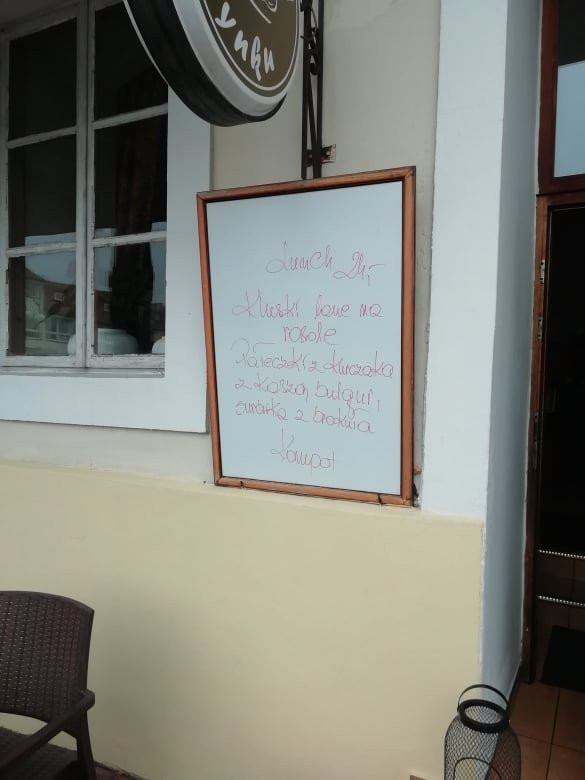 Lunch 24,-
Kluski lane na
rosole
Pałeczki z kurczaka
z kaszą bulgur,
surówka z brokuła
Kompot